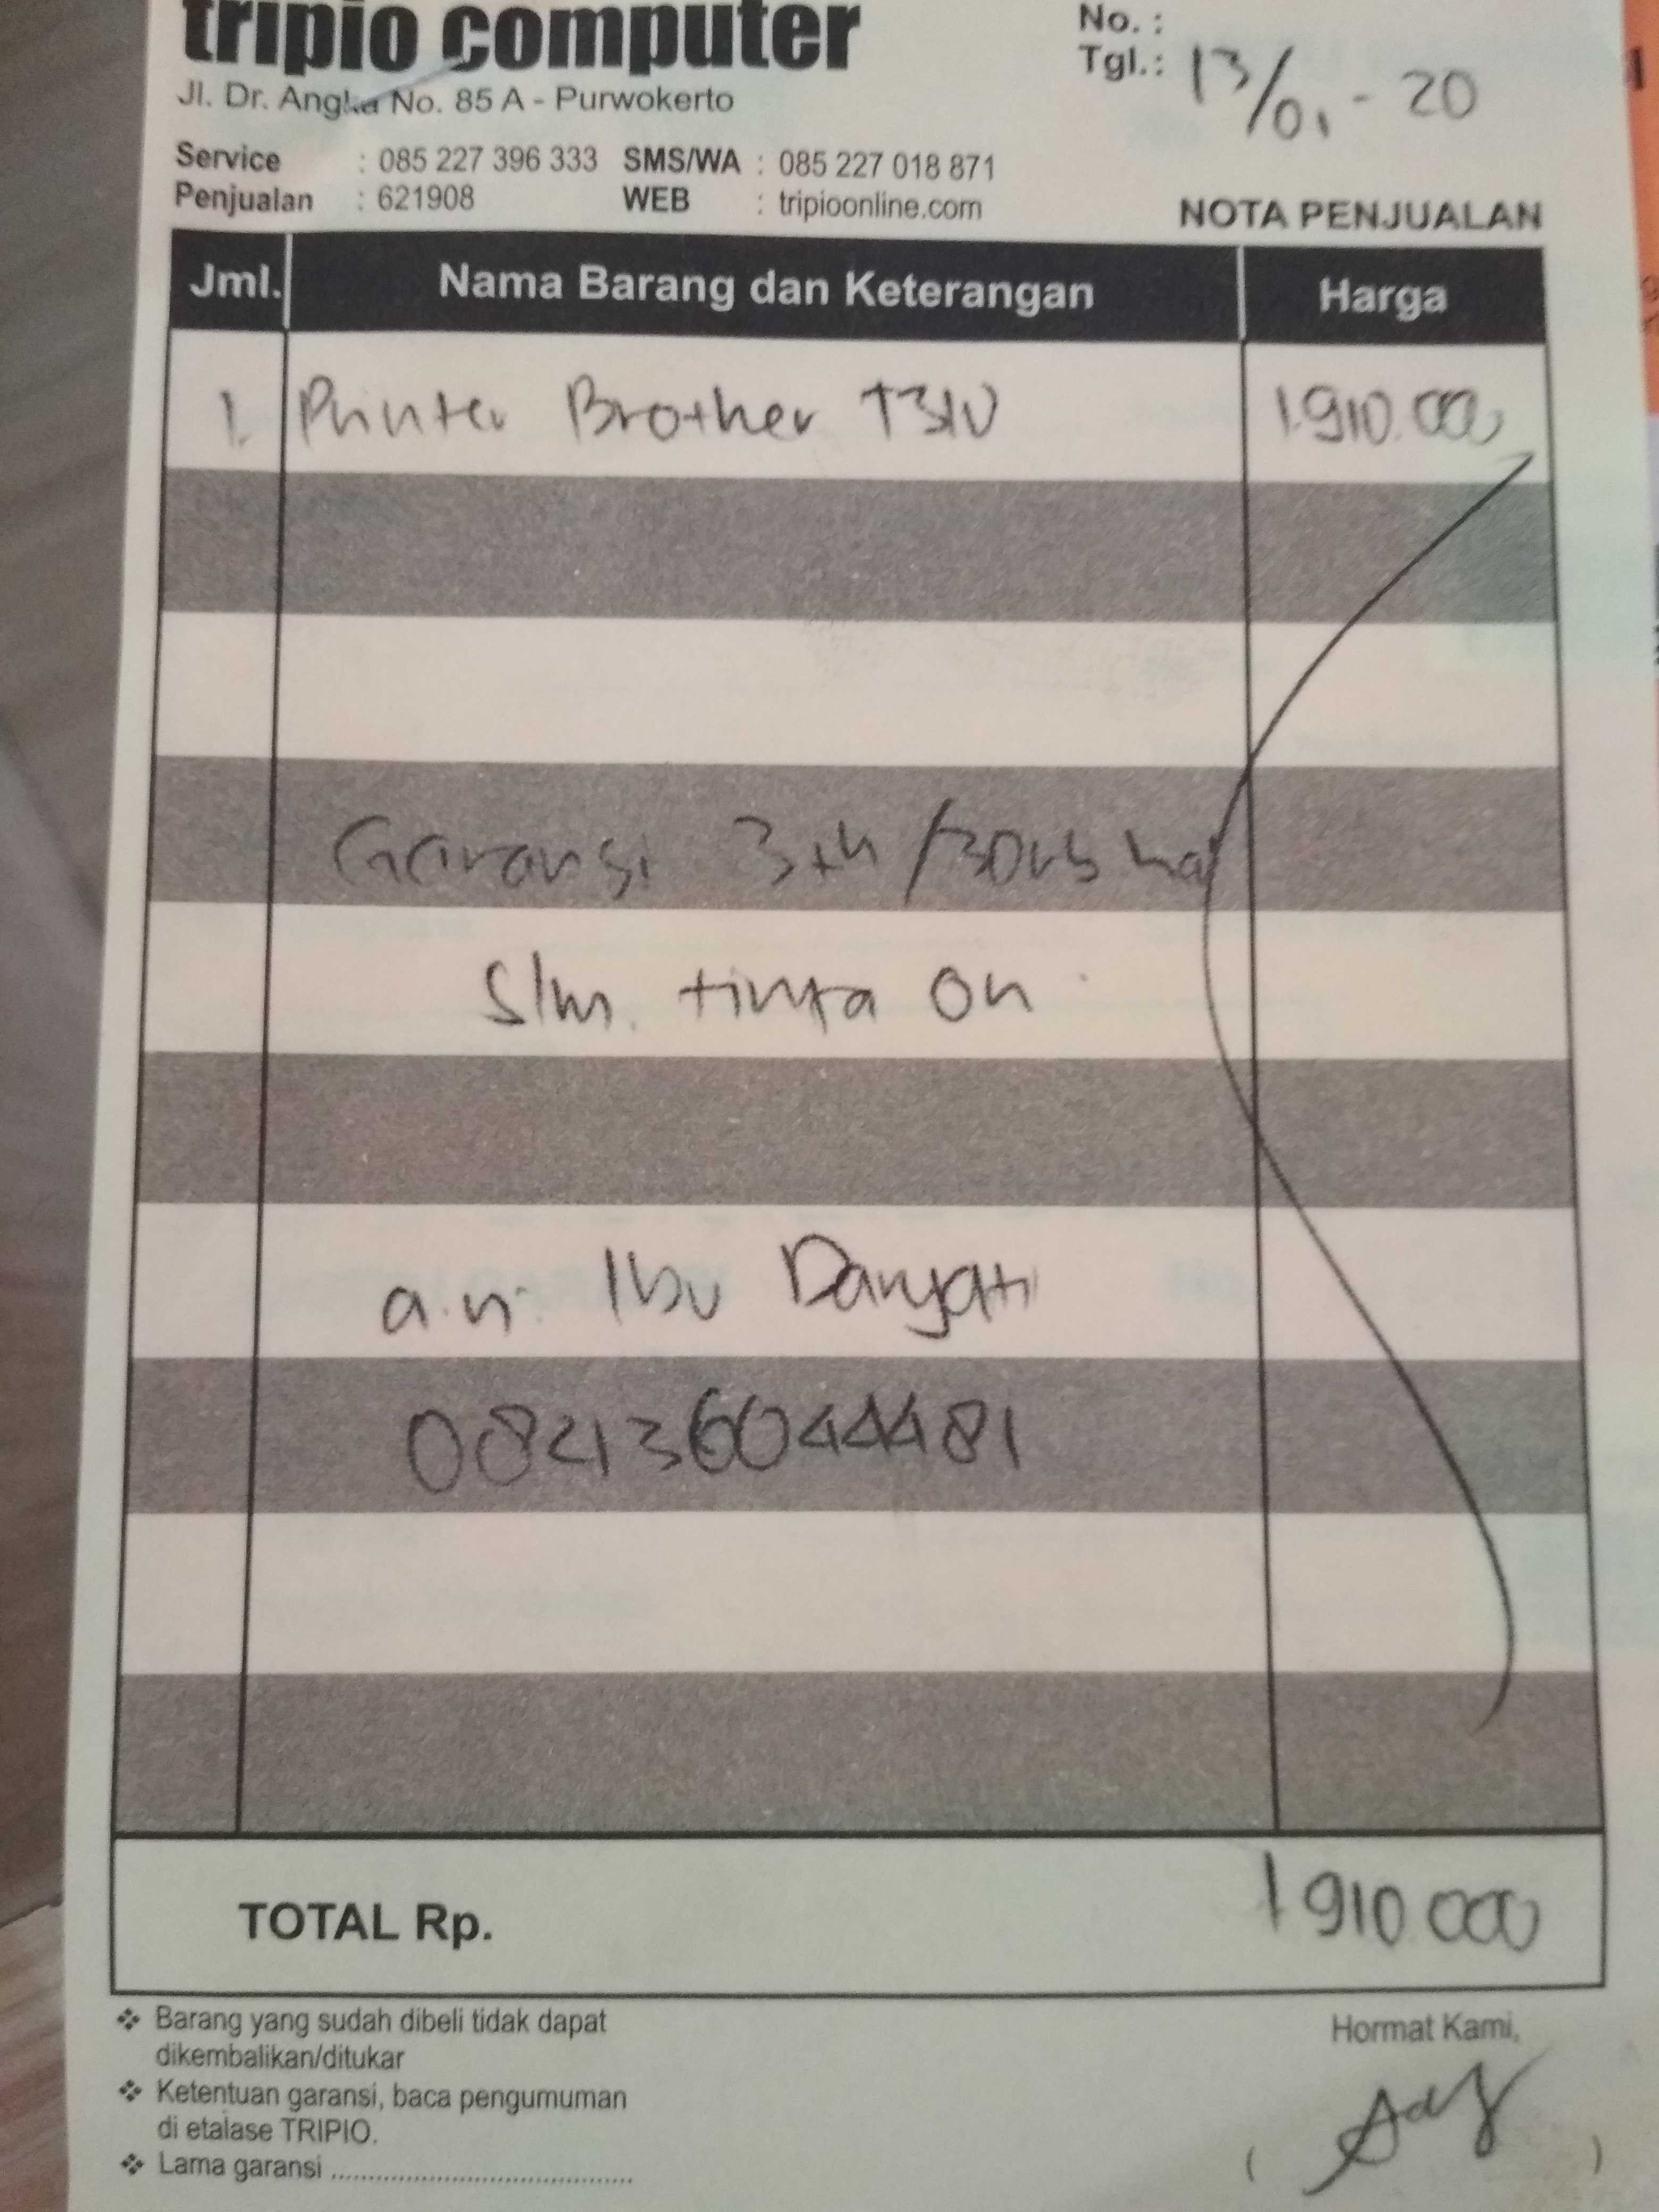 tripio computer
Jl. Dr. Angka No. 85 A - Purwokerto
No. :
Tgl.: 13/01 - 20
Service : 085 227 396 333 SMS/WA : 085 227 018 871
Penjualan : 621908 WEB : tripioonline.com
NOTA PENJUALAN
Jml. Nama Barang dan Keterangan Harga
1. Printer Brother T310 1.910.000
Garansi 3th/30rb hal
Slm. tinta On
a.n. Ibu Daryati
082136044481
TOTAL Rp. 1 910.000
❖ Barang yang sudah dibeli tidak dapat
dikembalikan/ditukar
❖ Ketentuan garansi, baca pengumuman
di etalase TRIPIO.
❖ Lama garansi ........................................
Hormat Kami,
( )